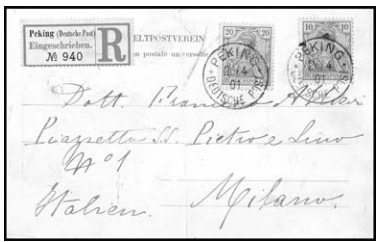 Peking (Deutsche Post)
Eingeschrieben.
№ 940
R
ELTPOSTVEREIN
n postale universelle
20 20
10 10
PEKING
14
01
DEUTSCHE POST
PEKING
4
01
Dott.
Piazzetta SS. Pietro e Lino
No 1
Italien.
Milano.